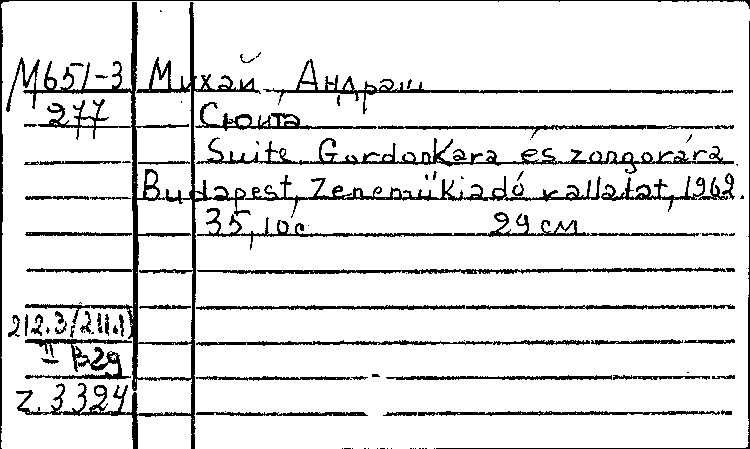 М651-3 Михай, Андраш
277 Сюита
Suite Gordonkara és zongorára
Budapest, Zeneműkiadó vallatat, 1962.
35, 10 с 29 см
212.3/211.1)
II В29
Z. 3324